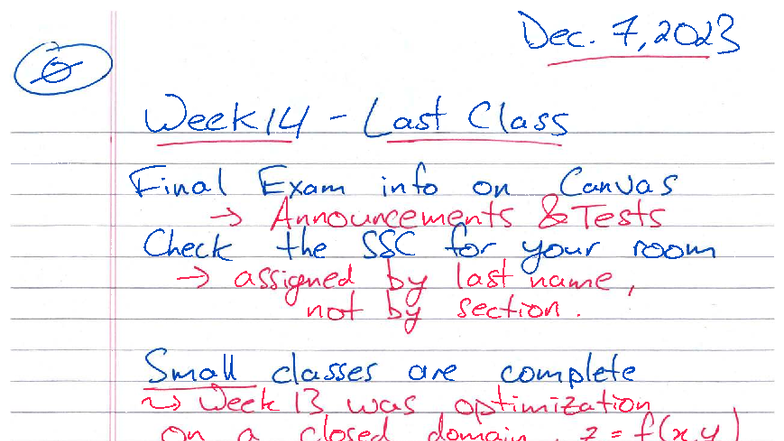 Dec. 7, 2023
Week 14 - Last Class
Final Exam info on Canvas
→ Announcements & Tests
Check the SSC for your room
→ assigned by last name,
not by section.
Small classes are complete
↝ Week 13 was optimization
on a closed domain, z = f(x,y)